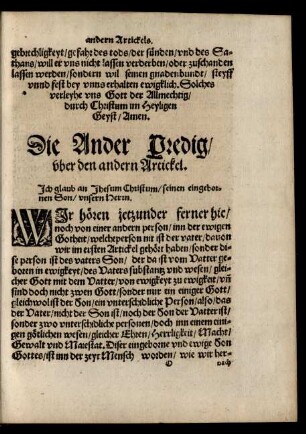 andern Artickels.
gebrechligkeyt/ gefahr des tods/ der sünden/ vnd des Sa-
thans/ will er vns nicht lassen verderben/ oder zuschanden
lassen werden/ sondern wil seinen gnadenbund/ steyff
vnnd fest bey vnns erhalten ewigklich. Solches
verleyhe vns Gott der Allmechtig/
durch Christum im Heyligen
Geyst/ Amen.
Die Ander Predig/
vber den andern Artickel.
Ich glaub an Jhesum Christum/ seinen eingebor-
nen Son/ vnsern Herrn.
WIr hören jetzunder ferner hie/
noch von einer andern person/ inn der ewigen
Gotheit/ welche person nit ist der vater/ dauon
wir im ersten Artickel gehört haben/ sonder di-
se person ist des vaters Son/ der da ist vom Vatter ge-
boren in ewigkeyt/ des Vaters substantz vnd wesen/ glei-
cher Gott mit dem Vatter/ von ewigkeyt zu ewigkeyt/ vñ
sind doch nicht zwen Gott/ sonder nur ein einiger Gott/
gleichwol ist der Son/ ein vnterschidliche Person/ also/ das
der Vater/ nicht der Son ist/ noch der Son der Vatter ist/
sonder zwo vnterschidliche personen/ doch inn einem eini-
gen götlichen wesen/ gleicher Ehren/ Herrligkeit/ Macht/
Gewalt vnd Maiestat. Diser eingeborne vnd ewige Son
Gottes/ ist inn der zeyt Mensch worden/ wie wir her-
O
nach